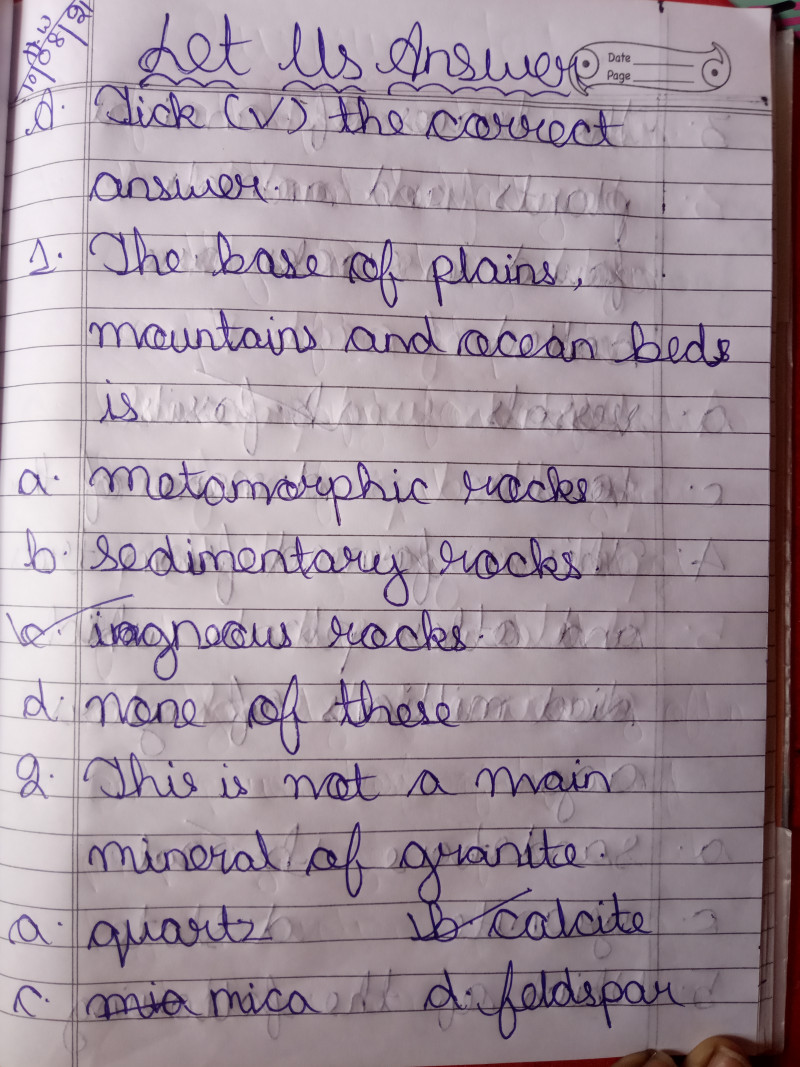 H.W
10/08/21
Let Us Answer
Date
Page
A. Tick (✓) the correct
answer.
1. The base of plains,
mountains and ocean beds
is
a. metamorphic rocks
b. sedimentary rocks.
c. iragneous rocks.
d. none of these
2. This is not a main
mineral of granite.
a. quartz b. calcite
c. mia mica d. feldspar